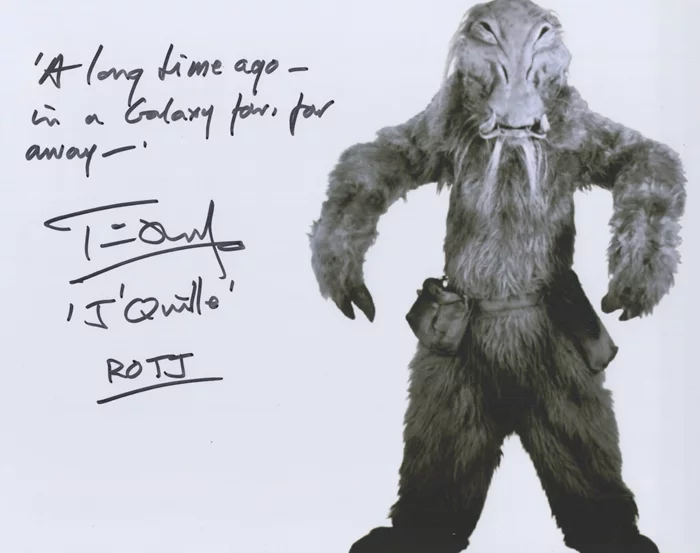 'A long time ago –
in a Galaxy far, far
away –'
'J'Quille'
ROTJ